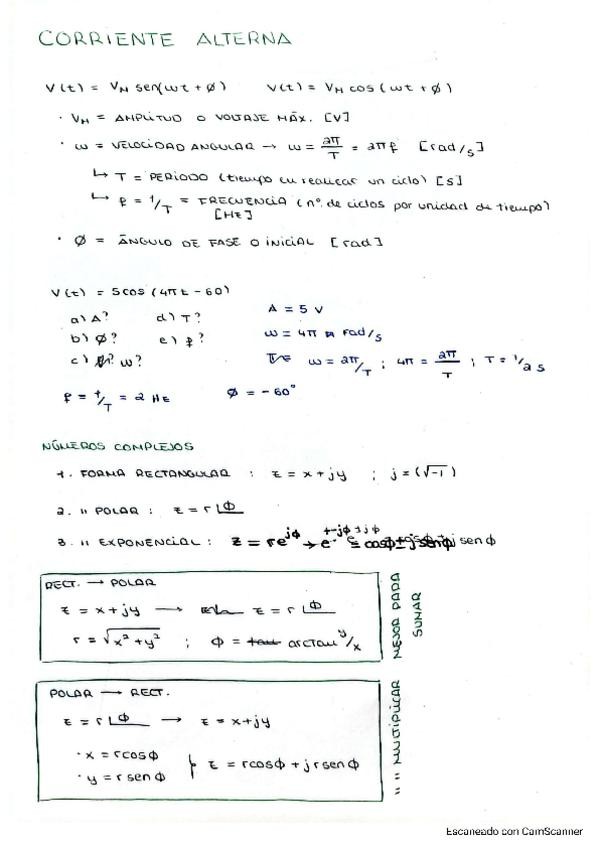 CORRIENTE ALTERNA
V(t) = VM sen(ωt + Ø)    V(t) = VM cos(ωt + Ø)
· VM = AMPLITUD O VOLTAJE MÁX. [V]
· ω = VELOCIDAD ANGULAR → ω = 2π/T = 2πf [rad/s]
↳ T = PERIODO (tiempo en realizar un ciclo) [s]
↳ f = 1/T = FRECUENCIA (nº de ciclos por unidad de tiempo)
[Hz]
· Ø = ÁNGULO DE FASE O INICIAL [rad]
V(t) = 5cos(4πt - 60)
a) A?    d) T?    A = 5 V
b) Ø?    e) f?    ω = 4π rad/s
c) ω?    ω = 2π/T ; 4π = 2π/T ; T = 1/2 s
f = 1/T = 2 Hz    Ø = -60°
NÚMEROS COMPLEJOS
1. FORMA RECTANGULAR : z = x + jy ; j = (√-1)
2. " POLAR : z = r∠Φ
3. " EXPONENCIAL : z = re^jΦ → e^±jΦ = cosΦ ± j senΦ
RECT. → POLAR
z = x + jy → z = r∠Φ
r = √x² + y² ; Φ = arctan y/x
MEJOR PARA
SUMAR
POLAR → RECT.
z = r∠Φ → z = x + jy
· x = r cosΦ
· y = r senΦ
z = r cosΦ + j r senΦ
" " MULTIPLICAR
Escaneado con CamScanner